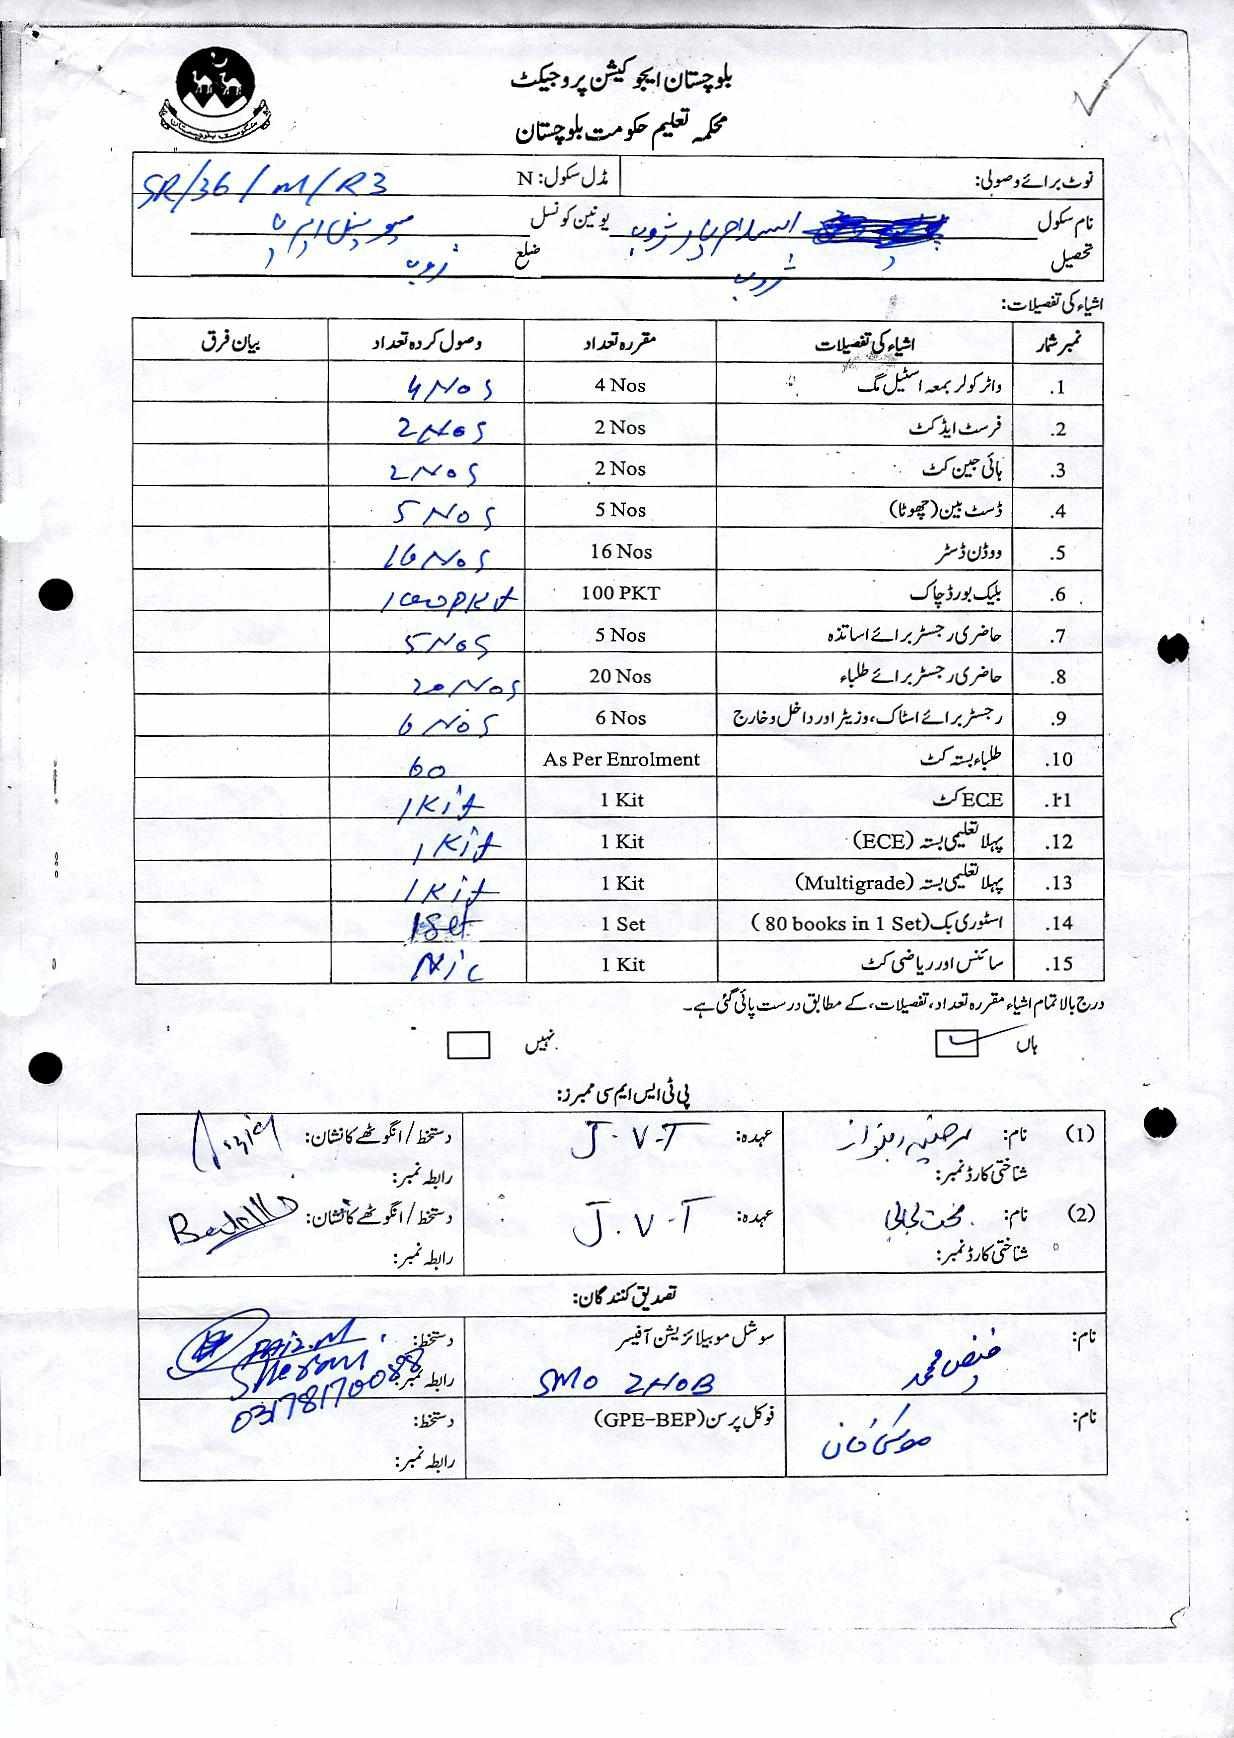 بلوچستان ایجوکیشن پروجیکٹ
محکمہ تعلیم حکومت بلوچستان
نوٹ برائے وصولی: مڈل سکول: N SR/36/M/R3
نام سکول اسلام یار ژوب یونین کونسل
تحصیل ژوب ضلع ژوب
اشیاء کی تفصیلات:
نمبر شمار اشیاء کی تفصیلات مقررہ تعداد وصول کردہ تعداد بیان فرق
1. واٹر کولر بمعہ اسٹیل مگ 4 Nos 4 Nos
2. فرسٹ ایڈ کٹ 2 Nos 2 Nos
3. ہائی جین کٹ 2 Nos 2 Nos
4. ڈسٹ بین (چھوٹا) 5 Nos 5 Nos
5. ووڈن ڈسٹر 16 Nos 16 Nos
6. بلیک بورڈ چاک 100 PKT 100 PKT
7. حاضری رجسٹر برائے اساتذہ 5 Nos 5 Nos
8. حاضری رجسٹر برائے طلباء 20 Nos 20 Nos
9. رجسٹر برائے اسٹاک، وزیٹر اور داخل و خارج 6 Nos 6 Nos
10. طلباء بستہ کٹ As Per Enrolment 60
11. ECE کٹ 1 Kit 1 Kit
12. پہلا تعلیمی بستہ (ECE) 1 Kit 1 Kit
13. پہلا تعلیمی بستہ (Multigrade) 1 Kit 1 Kit
14. اسٹوری بک (80 books in 1 Set) 1 Set 1 Set
15. سائنس اور ریاضی کٹ 1 Kit
درج بالا تمام اشیاء مقررہ تعداد، تفصیلات، کے مطابق درست پائی گئی ہے۔
ہاں نہیں
پی ٹی ایس ایم سی ممبرز:
(1) نام: عہدہ: J.V-T دستخط / انگوٹھے کا نشان:
شناختی کارڈ نمبر: رابطہ نمبر:
(2) نام: عہدہ: J.V-T دستخط / انگوٹھے کا نشان:
شناختی کارڈ نمبر: رابطہ نمبر:
تصدیق کنندگان:
نام: فیض محمد سوشل موبیلائزیشن آفیسر SMO ZHOB دستخط: رابطہ نمبر: 03178170088
نام: موسیٰ خان فوکل پرسن (GPE-BEP) دستخط:
رابطہ نمبر: